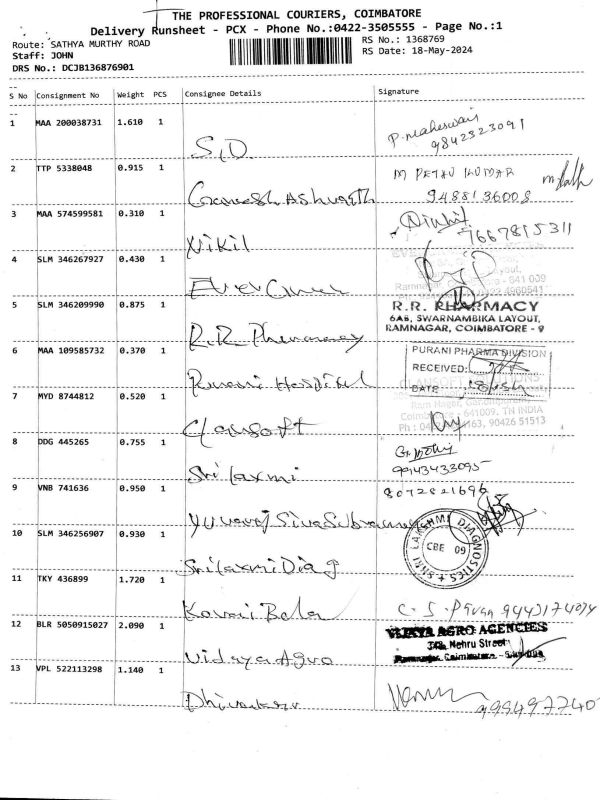 THE PROFESSIONAL COURIERS, COIMBATORE
Delivery Runsheet - PCX - Phone No.:0422-3505555 - Page No.:1
Route: SATHYA MURTHY ROAD
Staff: JOHN
DRS No.: DCJB136876901
RS No.: 1368769
RS Date: 18-May-2024
S No Consignment No Weight PCS Consignee Details Signature
1 MAA 200038731 1.610 1
S.D. P. maheswari 9842323091
2 TTP 5338048 0.915 1
Ganesh Ashwath 9488136008
3 MAA 574599581 0.310 1
Nikil 7667815311
4 SLM 346267927 0.430 1
5 SLM 346209990 0.875 1
R.R. Pharmacy
R.R. PHARMACY
6AB, SWARNAMBIKA LAYOUT,
RAMNAGAR, COIMBATORE - 9
6 MAA 109585732 0.370 1
Purani Hospital
PURANI PHARMA DIVISION
RECEIVED:
DATE
7 MYD 8744812 0.520 1
Ram Nagar,
Coimbatore - 641009. TN INDIA
90426 51513
8 DDG 445265 0.755 1
Sri laxmi 9943433095
9 VNB 741636 0.950 1
Yuvaraj Siva Subramani 8072821696
10 SLM 346256907 0.930 1
Sri laxmi Diag
SHRI LAKSHMI DIAGNOSTICS
CBE 09
11 TKY 436899 1.720 1
Kovai Bala C. S. Pavan 9443174074
12 BLR 5050915027 2.090 1
Vidaya Agro
VIJAYA AGRO AGENCIES
Nehru Street
Ramnagar, Coimbatore -
13 VPL 522113298 1.140 1